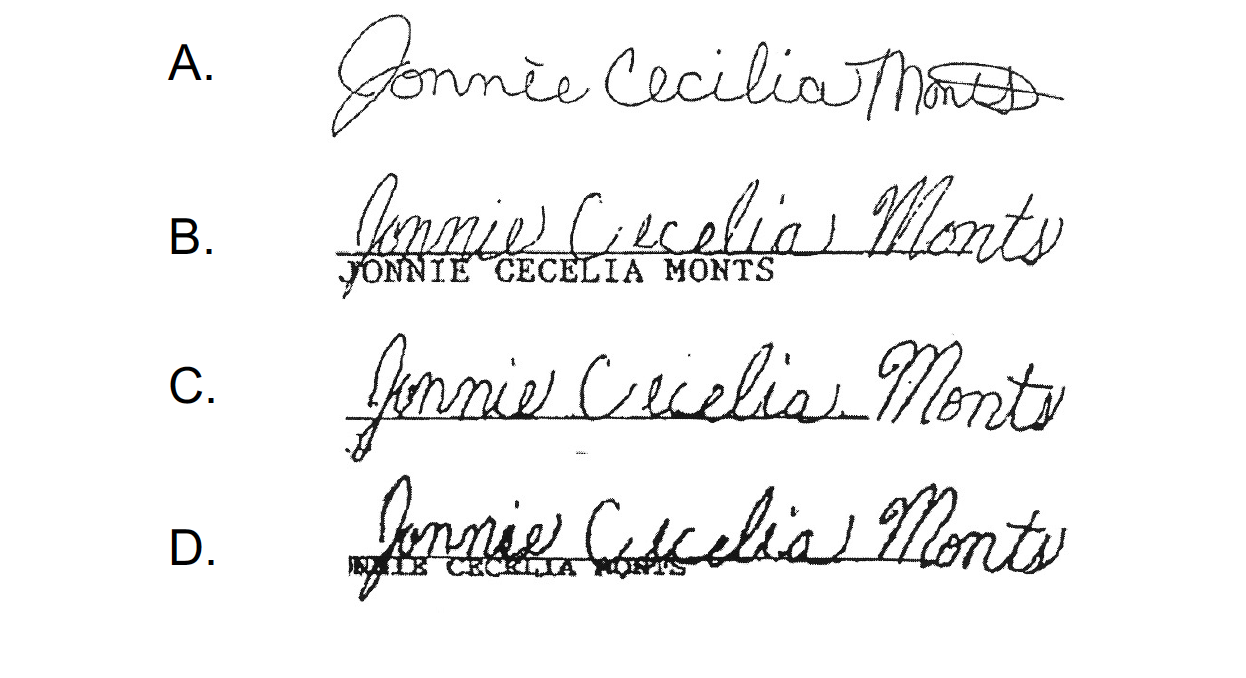 A. Jonnie Cecilia Monts
B. Jonnie Cecelia Monts
JONNIE CECELIA MONTS
C. Jonnie Cecelia Monts
D. Jonnie Cecelia Monts
NNIE CECELIA MONTS